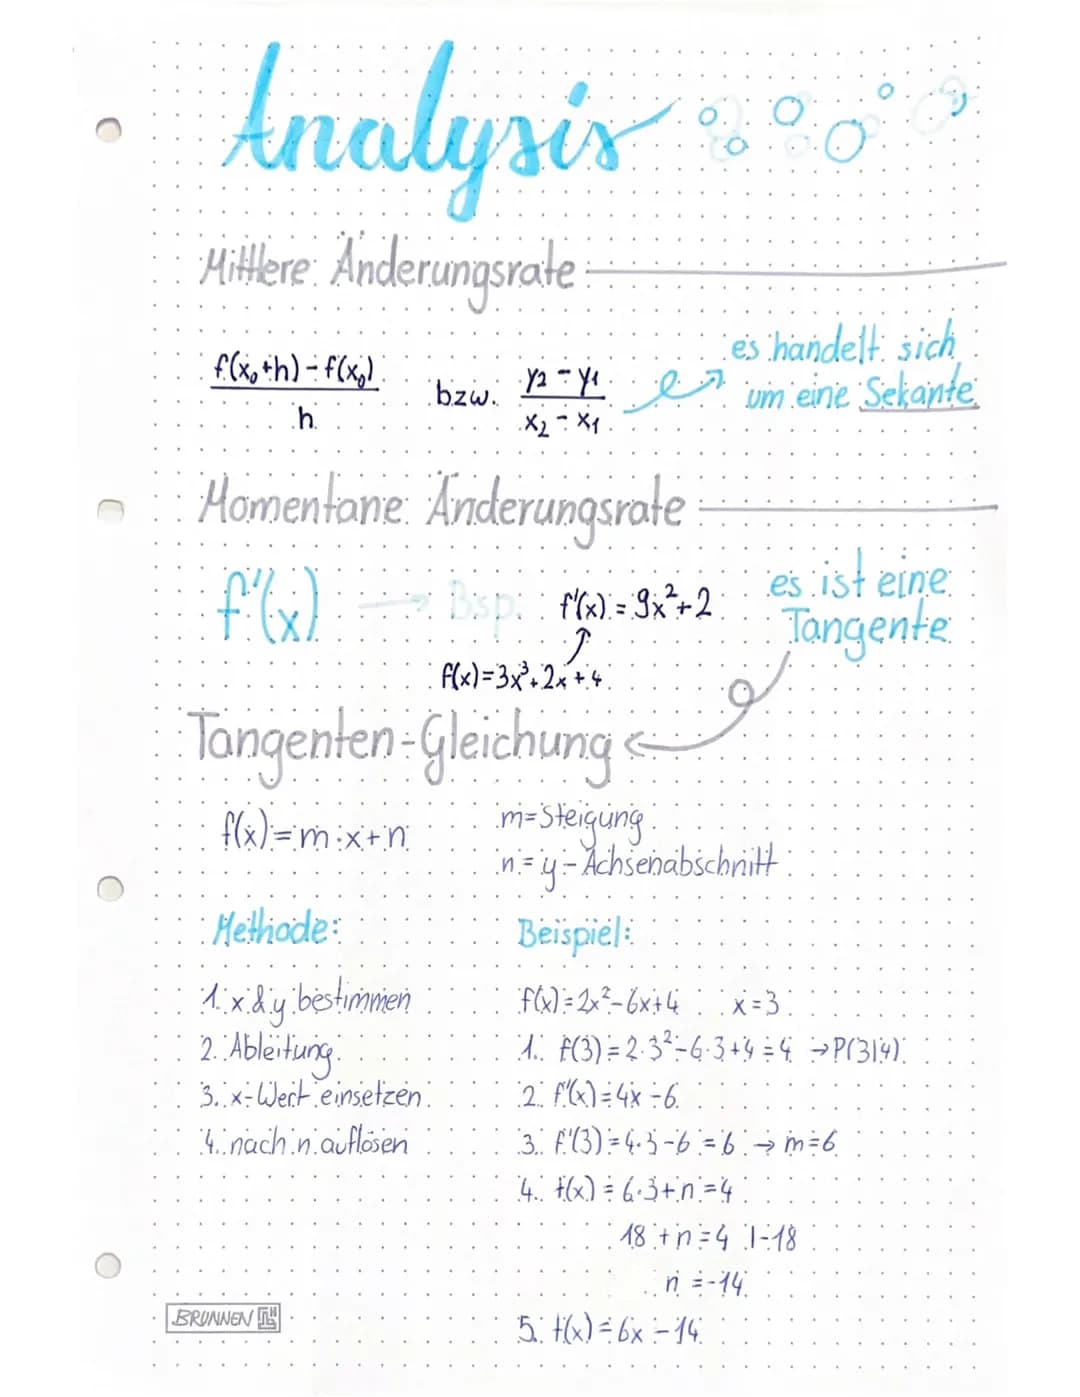 Analysis
Mittlere Änderungsrate
f(x₀+h)-f(x₀)
h
bzw.
y₂ - y₁
x₂ - x₁
es handelt sich
um eine Sekante
Momentane Änderungsrate
f'(x) → Bsp. f'(x) = 9x²+2
f(x)=3x³+2x+4
es ist eine
Tangente
Tangenten-Gleichung
f(x)=m·x+n
m=Steigung
n=y-Achsenabschnitt
Methode:
1. x & y bestimmen
2. Ableitung
3. x-Wert einsetzen
4. nach n auflösen
Beispiel:
f(x)=2x²-6x+4 x=3
1. f(3)=2·3²-6·3+4=4 →P(3|4)
2. f'(x)=4x-6
3. f'(3)=4·3-6=6 → m=6
4. t(x)=6·3+n=4
18+n=4 |-18
n=-14
5. t(x)=6x-14
BRUNNEN